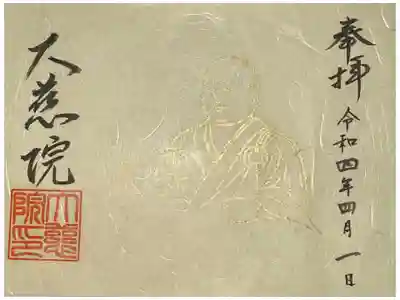 奉拝
令和四年四月一日
大慈院
大慈院印